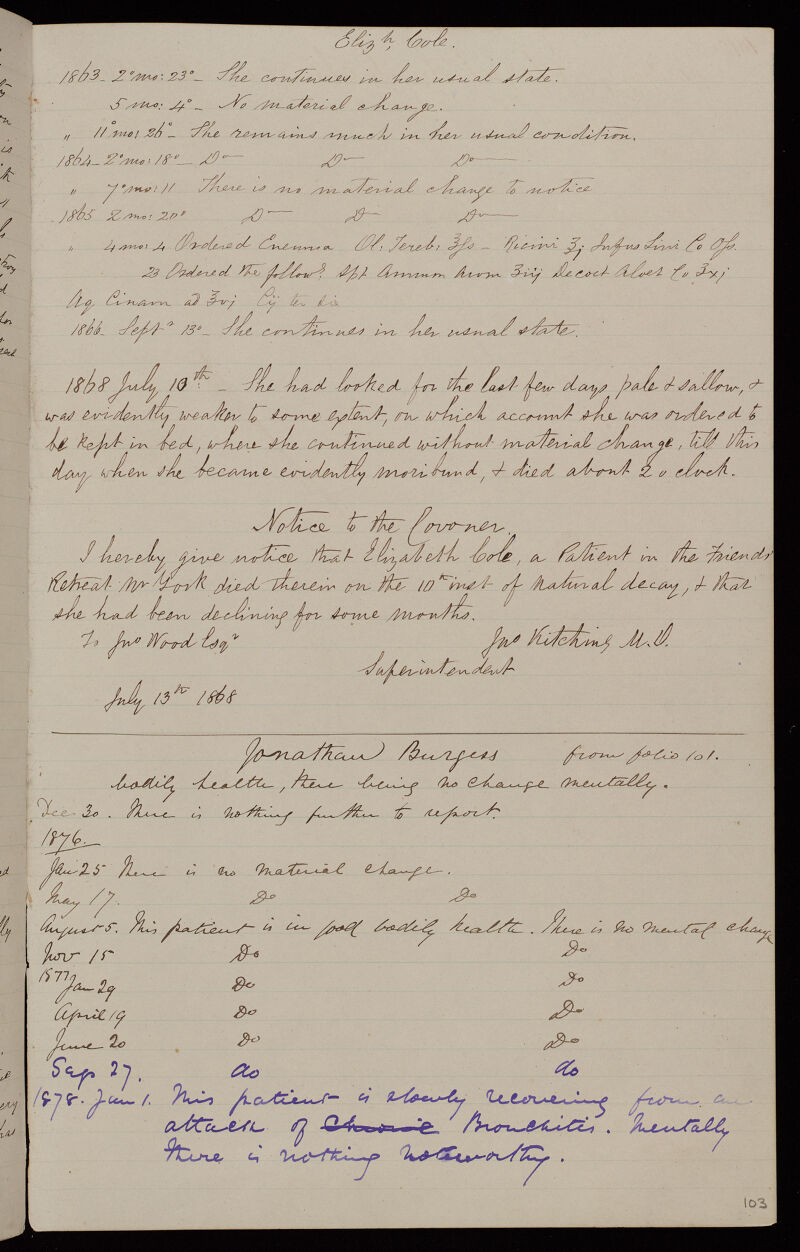 Elizth Cole.
1863 – 2°mo: 23° – She continues in her usual state.
5 mo: 4° – No material change.
" 11°mo: 26° – She remains much in her usual condition.
1864 – 2°mo: 18° – Do – Do – Do –
" 7°mo: 11 There is no material change to notice
1865 2 mo: 20° Do – Do – Do –
" 4 mo: 4 Ordered Enema Ol: Tereb: ʒfs – Ricini ʒj Infus Lini Co
23 Ordered the follow: Spt Ammon Arom ʒiij Decoct Aloes Co ʒxj
Aq Cinam ad ʒvj Cij ter die
1866 Septr 13° – She continues in her usual state.
1868 July 10th – She had looked for the last few days pale & sallow, &
was evidently weaker to some extent, on which account she was ordered to
be kept in bed, where she continued without material change, till this
day when she became evidently moribund, & died about 2 o clock.
Notice to the Coroner.
I hereby give notice that Elizabeth Cole, a Patient in the Friends'
Retreat Nr York died therein on the 10th inst of Natural decay, & that
she had been declining for some months.
To Jno Wood Esqr Jno Kitching M.D.
Superintendent
July 13th 1868
Jonathan Burgess from folio 101.
bodily health, there being no change mentally.
Dec 30. There is nothing further to report.
1876.
Jan 25 There is no material change.
May 17. Do Do
August 5. This patient is in good bodily health. There is no mental change
Nov 15 Do Do
1877 Jan 29 Do Do
April 19 Do Do
June 20 Do Do
Sep 27. do do
1878. Jan 1. This patient is slowly recovering from an
attack of Chronic Bronchitis. Mentally
there is nothing noteworthy.
103